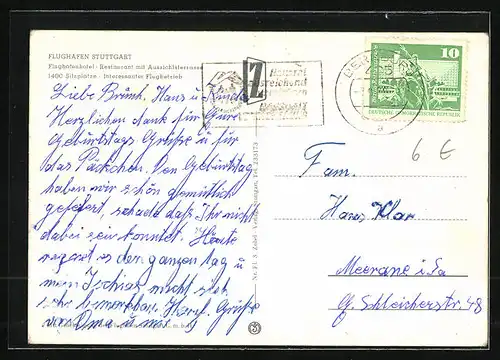 FLUGHAFEN STUTTGART
Flughafenhotel · Restaurant mit Aussichtsterrasse
1400 Sitzplätze · Interessanter Flugbetrieb
Liebe Hans u
Herzlichen Dank für Eure
Geburtstags Grüße u für
das Päckchen. Den Geburtstag
haben wir schön gemütlich
gefeiert, schade daß Ihr nicht
dabei sein konntet. Heute
regnet es den ganzen Tag u
mein Ischias macht sich
sehr bemerkbar. Herzl. Grüße
von Oma u
10
DEUTSCHE DEMOKRATISCHE REPUBLIK
a
6 €
Fam.
Hans Klar
Meerane i/Sa
G. Schleicherstr. 48
3